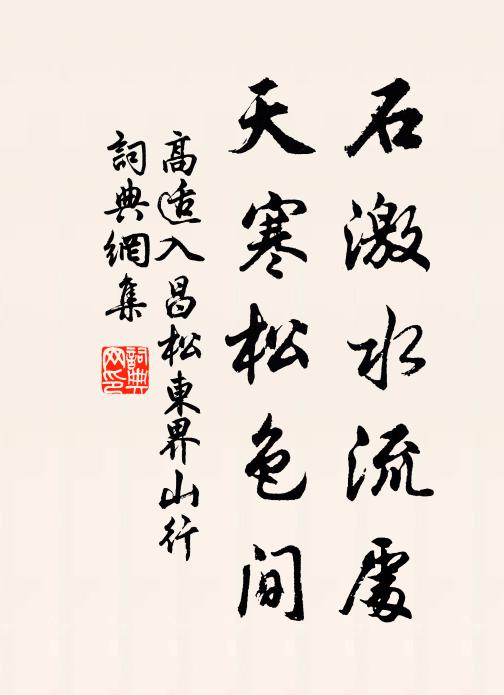 石激水流處
天寒松色間
高适入昌松東界山行
詞典網集
詞典
网印